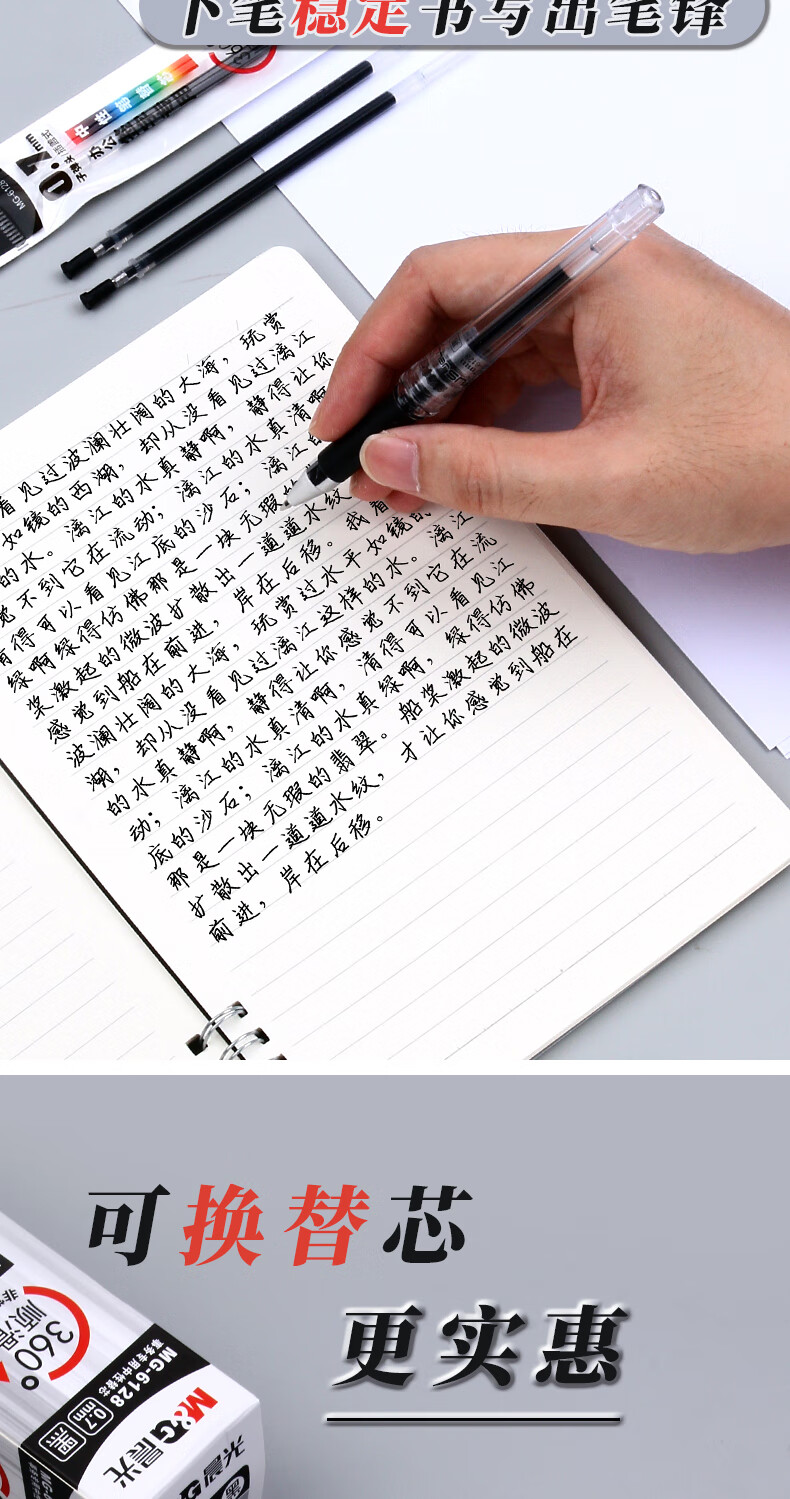 下笔稳定书写出笔锋
中性笔替芯
0.7mm
子弹头
办公
MG-6128
看见过波澜壮阔的大海，玩赏
如镜的西湖，却从没看见过漓江
的水。漓江的水真静啊，静得让你
觉不到它在流动；漓江的水真清啊
得可以看见江底的沙石；漓江的
绿啊绿得仿佛那是一块无瑕的
桨激起的微波扩散出一道道水纹
感觉到船在前进，岸在后移。我看
波澜壮阔的大海，玩赏过水平如镜的
湖，却从没看见过漓江这样的水。漓江
的水真静啊，静得让你感觉不到它在流
动；漓江的水真清啊，清得可以看见江
底的沙石；漓江的水真绿啊，绿得仿佛
那是一块无瑕的翡翠。船桨激起的微波
扩散出一道道水纹，才让你感觉到船在
前进，岸在后移。
可换替芯
更实惠
360°
顺滑
MG-6128
事务专用中性替芯
0.7mm
黑
M&G晨光